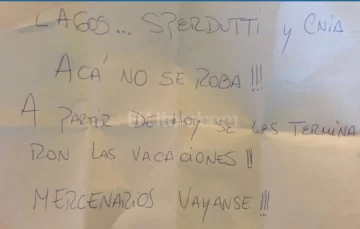 LAGOS... SPERDUTTI Y CNIA
ACÁ NO SE ROBA!!!
A PARTIR DE HOY SE LES TERMINA
RON LAS VACACIONES!!
MERCENARIOS VAYANSE!!!